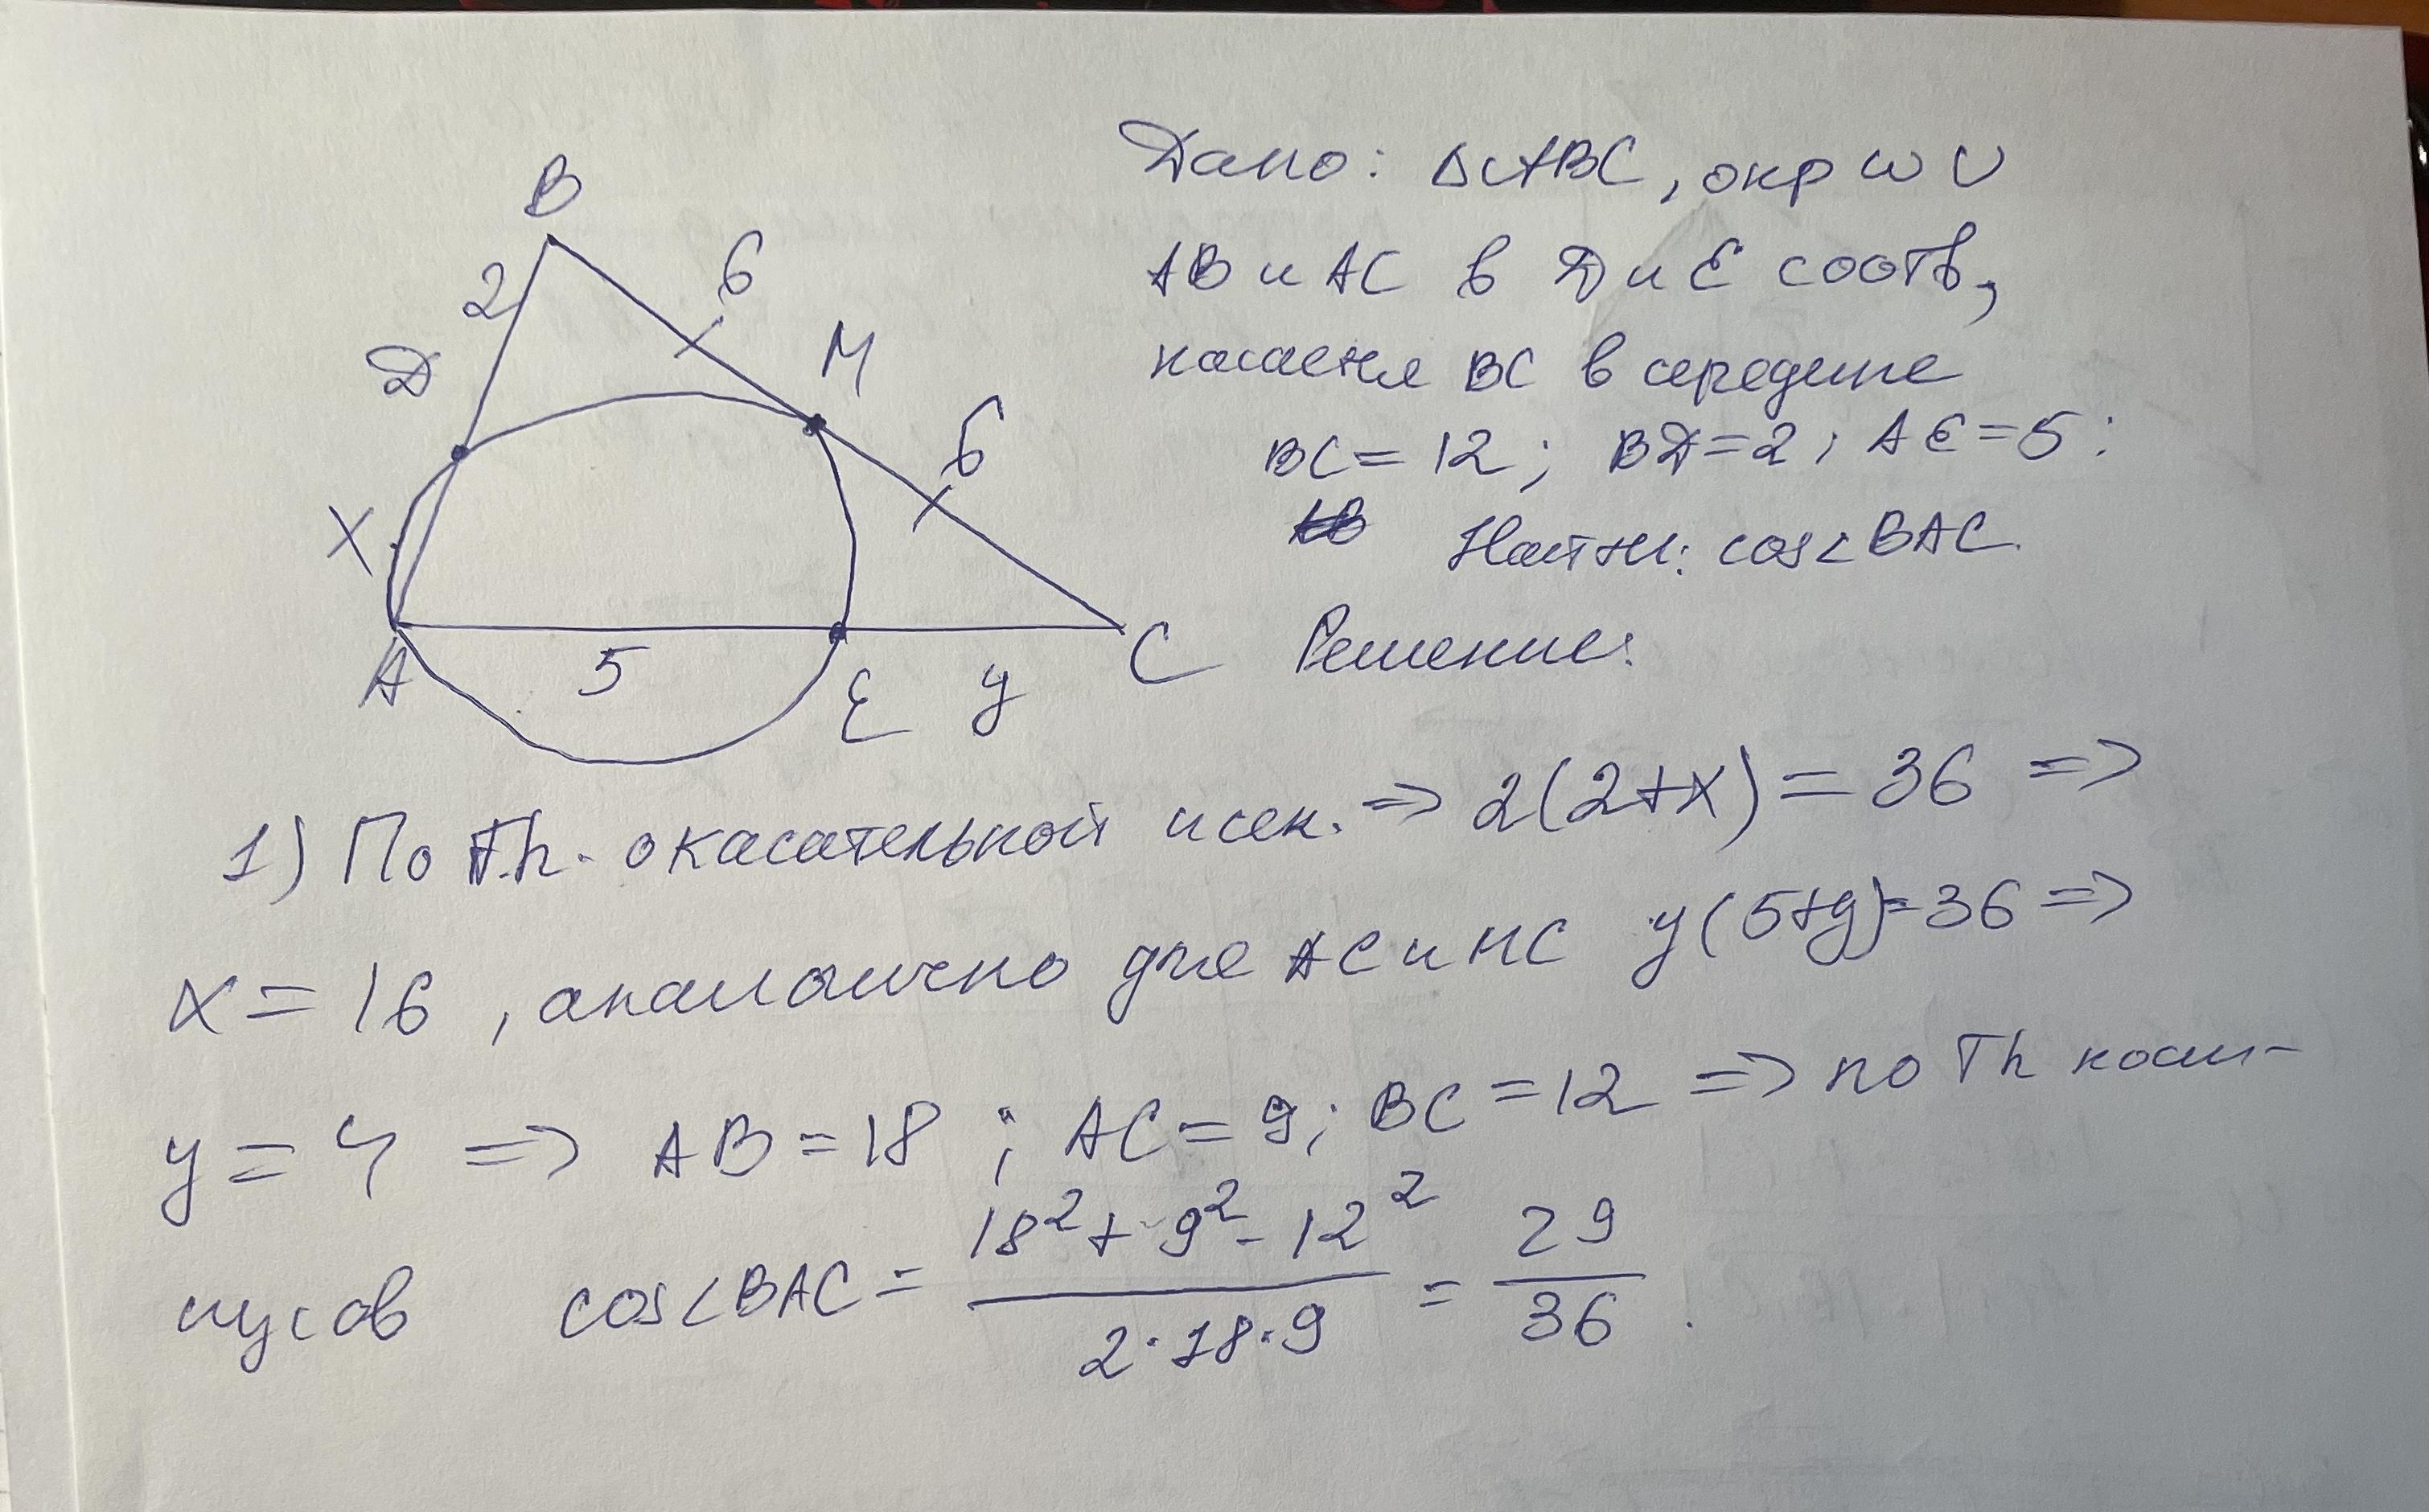 B
2
6
Д
M
6
X
A
5
E
y
C
Дано: △ABC, окр ω ∪
AB и AC в Д и E соотв,
касается BC в середине
BC = 12; BД=2, AE=5:
Найти: cos∠BAC.
Решение:
1) По Th. о касательной и сек. => 2(2+x) = 36 =>
x = 16, аналогично для AC и MC y(5+y)=36 =>
y = 4 => AB = 18; AC = 9; BC = 12 => по Th коси-
нусов cos∠BAC = 18² + 9² - 12² / 2·18·9 = 29/36.